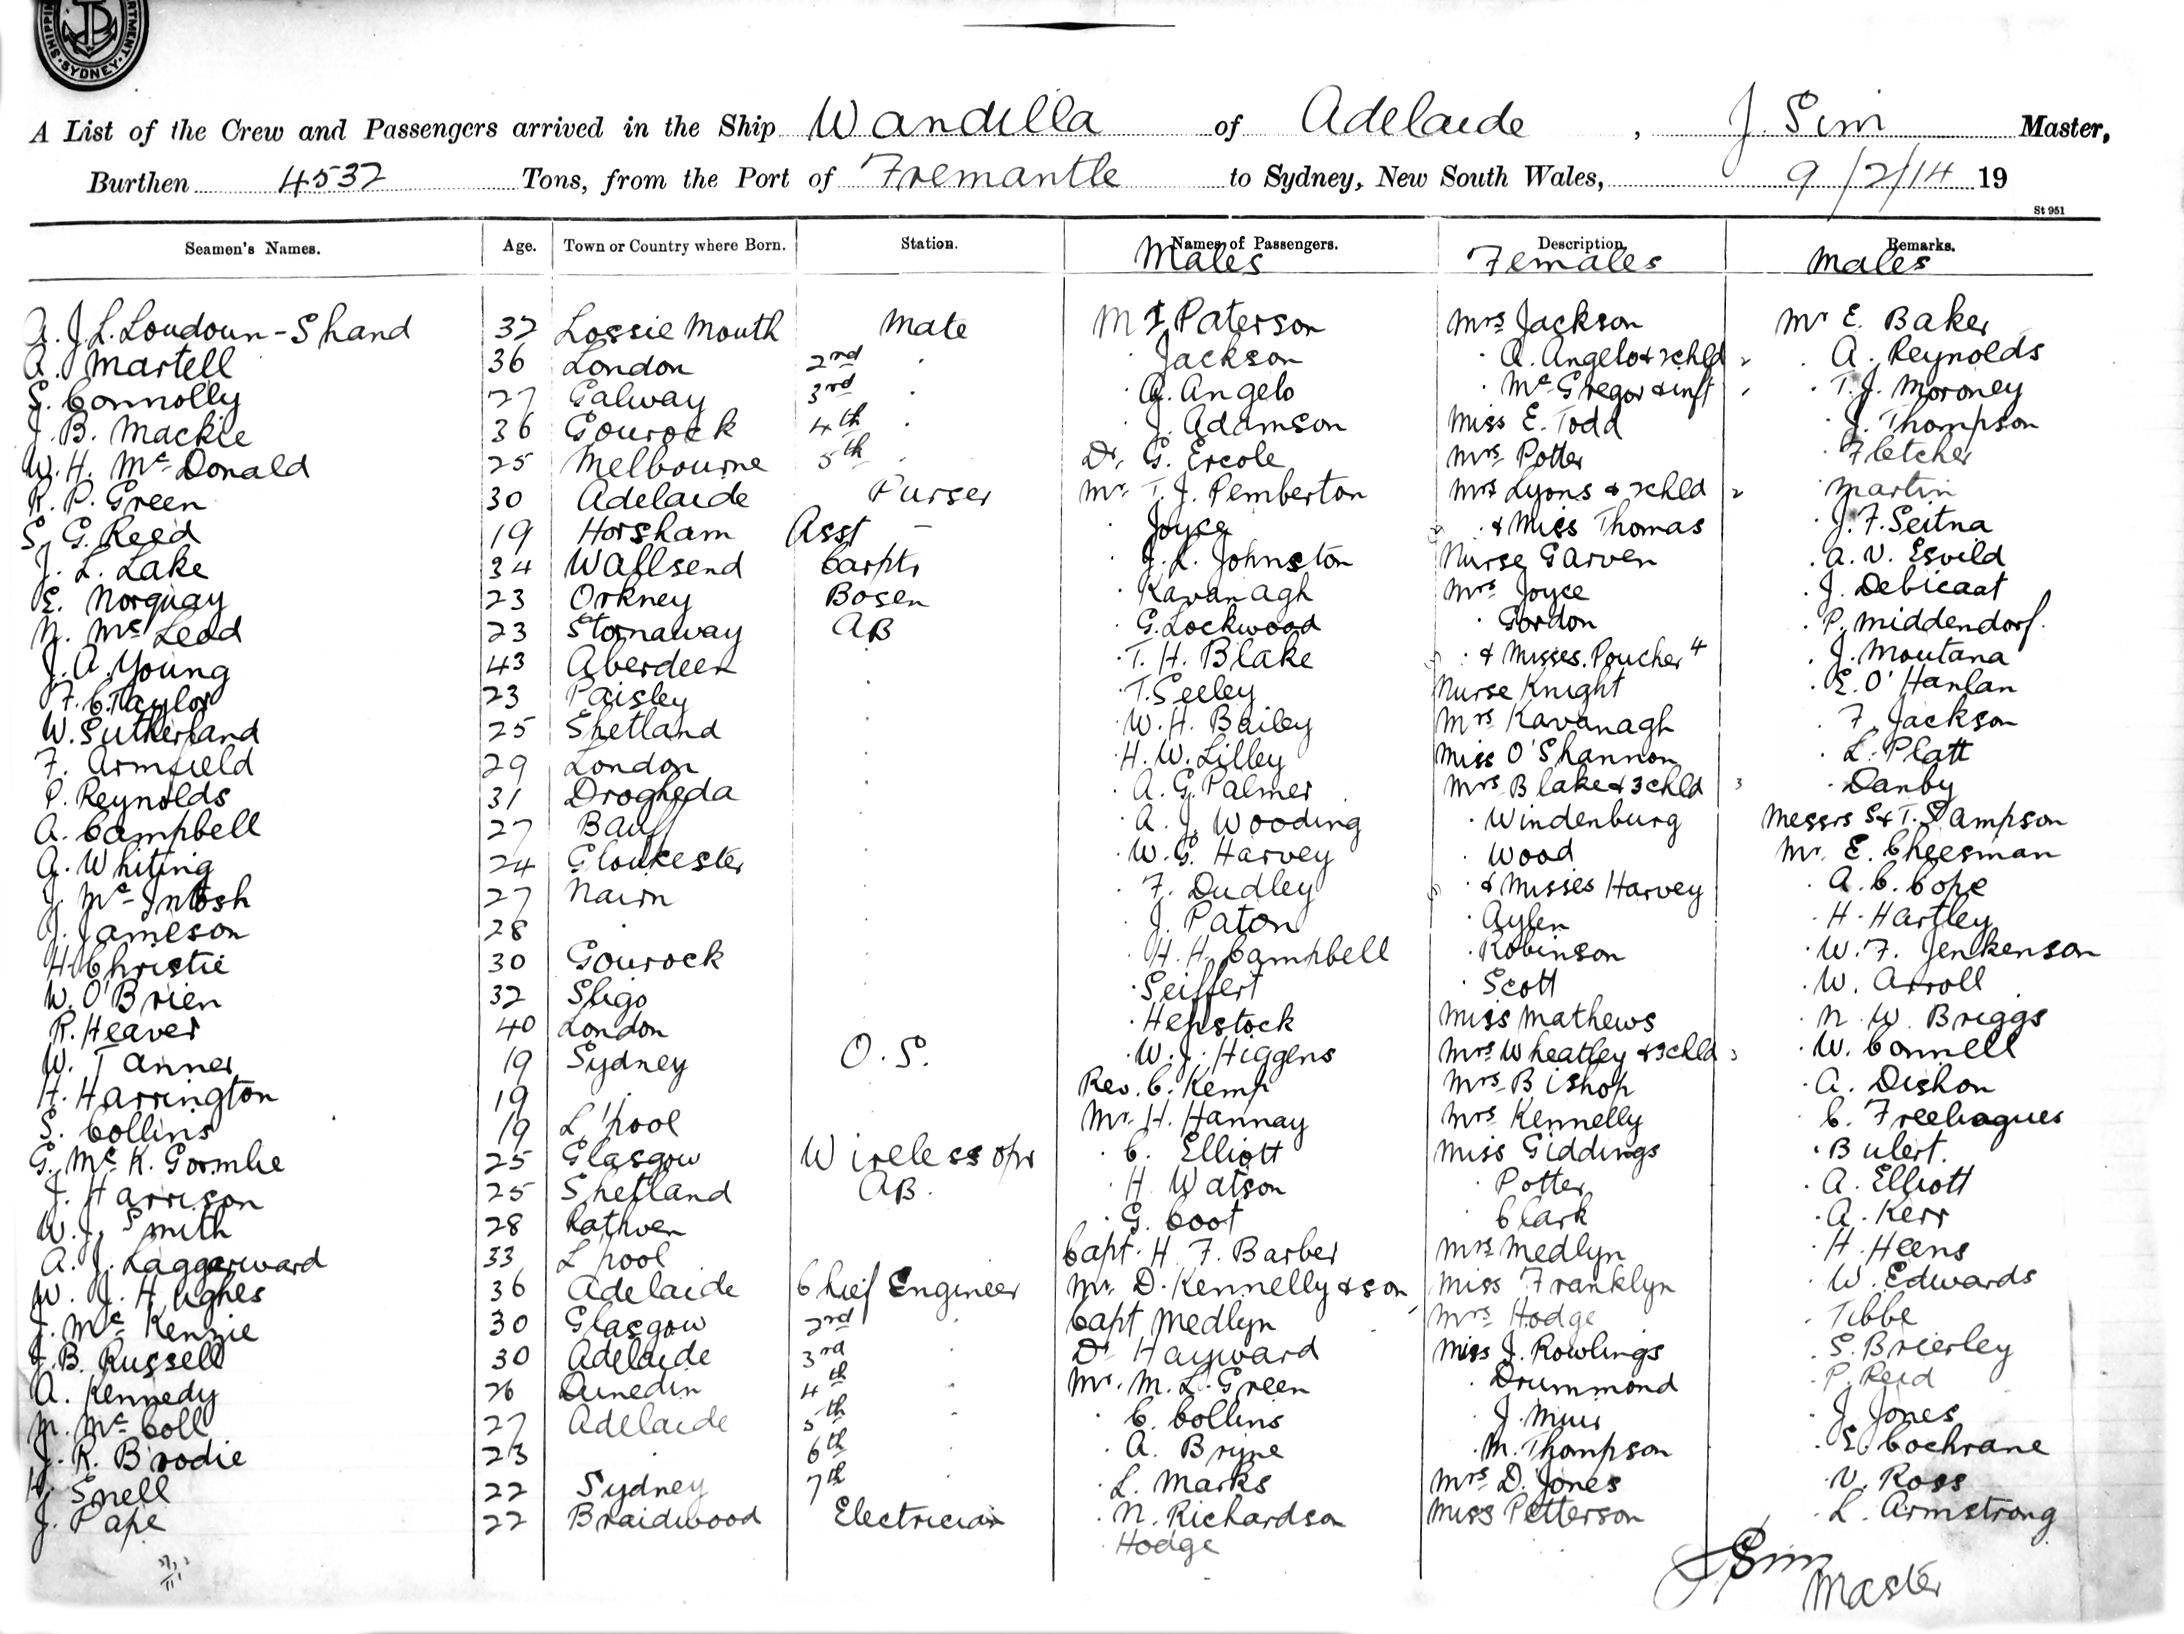 SHIPPING DEPARTMENT. SYDNEY.
A List of the Crew and Passengers arrived in the Ship Wandilla of Adelaide, J. Sim Master,
Burthen 4532 Tons, from the Port of Fremantle to Sydney, New South Wales, 9/2/14 19
St 951
Seamen's Names. Age. Town or Country where Born. Station. Names of Passengers. Description. Remarks.
Males Females Males
A. J. L. Loudoun-Shand 32 Lossie Mouth Mate Mr Paterson Mrs Jackson Mr E. Baker
A. Martell 36 London 2nd " Jackson " A. Angelo & 2 chld 2 " A. Reynolds
S. Connolly 27 Galway 3rd " A. Angelo " McGregor & inft " T. J. Moroney
J. B. Mackie 36 Gourock 4th " J. Adamson Miss E. Todd " J. Thompson
W. H. McDonald 25 Melbourne 5th " Dr. G. Ercole Mrs Potter " Fletcher
R. P. Green 30 Adelaide Purser Mr. T. J. Pemberton Mrs Lyons & 2 chld 2 " Martin
S. G. Reed 19 Horsham Asst - " Joyce " & Miss Thomas " J. F. Seitna
J. L. Lake 34 Wallsend Carptr " J. L. Johnston Nurse Garven " A. V. Esvild
E. Norquay 23 Orkney Bosen " Kavanagh Mrs Joyce " J. Debicaat
N. McLeod 23 Stornaway AB " G. Lockwood " Gordon " P. Middendorf.
J. A. Young 43 Aberdeen " " T. H. Blake " & Misses. Poucher 4 " J. Montana
F. C. Taylor 23 Paisley " " T. Seeley Nurse Knight " E. O'Hanlan
W. Sutherland 25 Shetland " " W. H. Bailey Mrs Kavanagh " F. Jackson
F. Armfield 29 London " " H. W. Lilley Miss O'Shannon " L. Platt
P. Reynolds 31 Drogheda " " A. G. Palmer Mrs Blake & 3 chld 3 " Danby
A. Campbell 27 Banff " " A. J. Wooding " Windenburg Messrs S & T. Sampson
A. Whiting 24 Gloucester " " W. G. Harvey " Wood Mr. E. Cheesman
J. McIntosh 27 Nairn " " F. Dudley " & Misses Harvey " A. C. Cope
J. Jameson 28 " " " J. Paton " Aylen " H. Hartley
H. Christie 30 Gourock " " H. H. Campbell " Robinson " W. F. Jenkenson
W. O'Brien 32 Sligo " " Seiffert " Scott " W. Arroll
R. Heaver 40 London " " Henstock Miss Mathews " N. W. Briggs
W. Tanner 19 Sydney O.S. " W. J. Higgens Mrs Wheatley & 3 chld 3 " W. Connell
H. Harrington 19 " " Rev. C. Kemp Mrs Bishop " A. Dishon
S. Collins 19 L'pool " Mr. H. Hannay Mrs Kennelly " C. Freehagues
G. McK. Gormlie 25 Glasgow Wireless opr " C. Elliott Miss Giddings " Bulert.
J. Harrison 25 Shetland AB. " H Watson " Potter " A. Elliott
W. J. Smith 28 Rathven " " G. Coot " Clark " A. Kerr
A. J. Laggarward 33 L'pool " Capt. H. F. Barber Mrs Medlyn " H. Heens
W. J. Hughes 36 Adelaide Chief Engineer Mr. D. Kennelly & son Miss Franklyn " W. Edwards
J. McKenzie 30 Glasgow 2nd " Capt Medlyn Mrs Hodge " Tibbe
J. B. Russell 30 Adelaide 3rd " Dr Hayward Miss J. Rowlings " S. Brierley
A. Kennedy 26 Dunedin 4th " Mr. M. L. Green " Drummond " P. Reid
M. McColl 27 Adelaide 5th " " C. Collins " J. Muir " J. Jones
J. R. Brodie 23 " 6th " " A. Bryne " M. Thompson " E. Cochrane
H. Snell 22 Sydney 7th " " L. Marks Mrs D. Jones " V. Ross
J. Pape 22 Braidwood Electrician " N. Richardson Miss Petterson " L. Armstrong
" Hodge
J Sim
Master